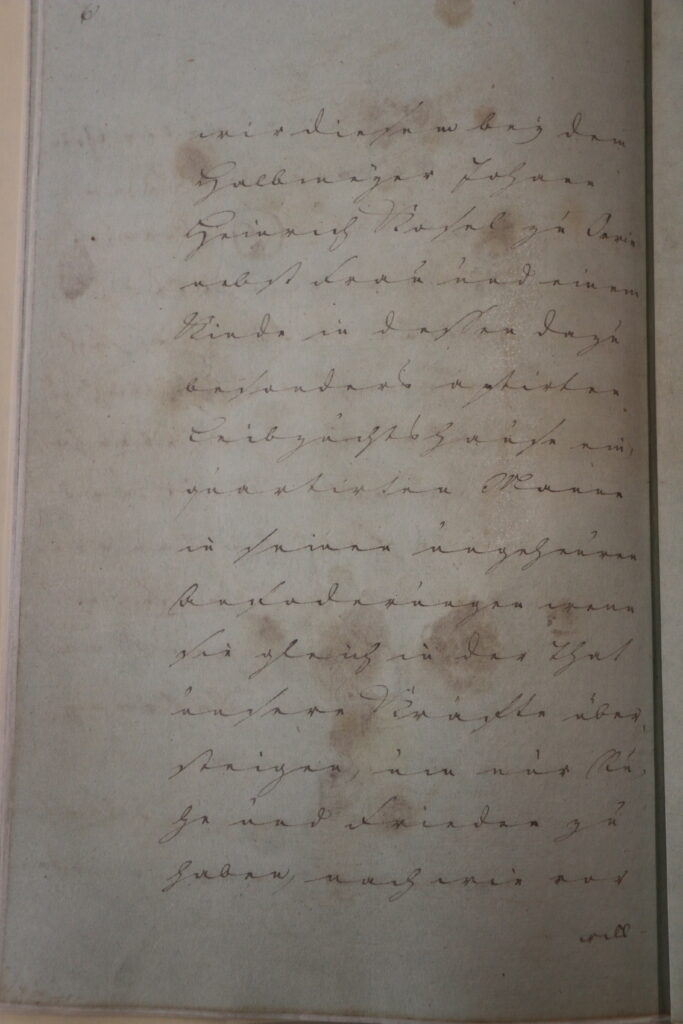 6
wir diesem bey dem
Halbmeyer Johann
Heinrich Kosel zu
nebst Frau und einem
Kinde in dessen dazu
besonders aptirten
Leibzuchtshause ein,
quartirten Manne
in seinen ungeheuren
Anfoderungen wenn
sie gleich in der That
unsere Kräfte über,
steigen, um nur Ru,
he und Frieden zu
haben, nach wie vor
will